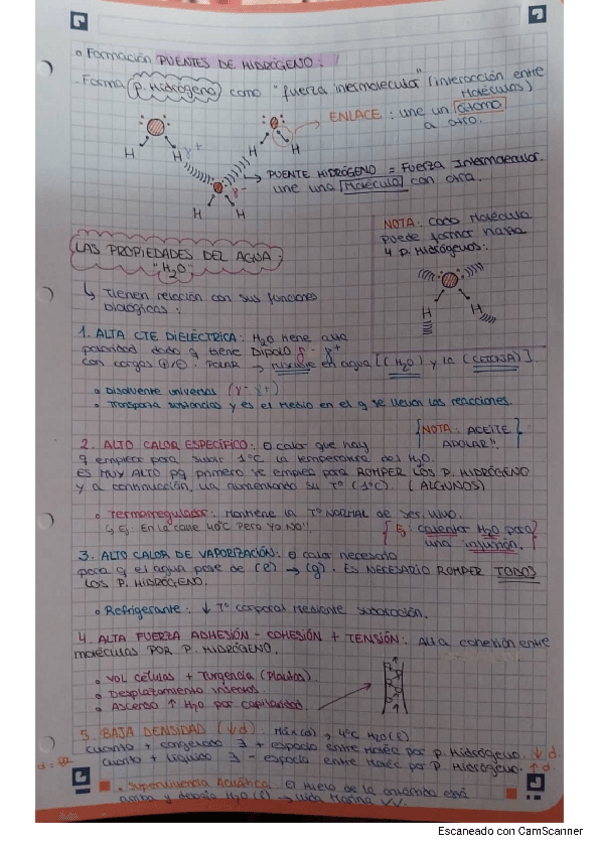 Formación PUENTES DE HIDRÓGENO:
- Forma P. Hidrógeno como "fuerza intermolecular" (interacción entre moléculas)
ENLACE: une un átomo a otro.
H H δ+ H H
δ-
H H
→ PUENTE HIDRÓGENO = Fuerza Intermolecular.
une una Molécula con otra.
NOTA: Cada Molécula
puede formar hasta
4 p. Hidrógenos:
H H
LAS PROPIEDADES DEL AGUA:
"H2O"
↳ Tienen relación con sus funciones
biológicas:
1. ALTA CTE DIELÉCTRICA: H2O tiene alta
polaridad dado q tiene Dipolo δ- δ+
con cargas ⊕/⊖. Polar → en agua [(H2O) y la (CETONA)].
Disolvente universal (δ- δ+)
Transporta sustancias y es el medio en el q se llevan las reacciones.
NOTA: ACEITE
APOLAR!!
2. ALTO CALOR ESPECÍFICO: El calor que hay
q emplear para 1°C la temperatura del H2O.
ES MUY ALTO pq primero se emplea para ROMPER LOS P. HIDRÓGENO
y a continuación, va aumentando su Tº (1ºC). (ALGUNOS)
Termorregulador: Mantiene la Tº NORMAL de ser vivo.
↳ Ej: En la calle 40ºC pero yo NO"
Ej: calentar H2O para
una infusión.
3. ALTO CALOR DE VAPORIZACIÓN: El calor necesario
para q el agua pase de (l) → (g). ES NECESARIO ROMPER TODOS
LOS P. HIDRÓGENO.
Refrigerante: ↓ Tº corporal mediante sudoración.
4. ALTA FUERZA ADHESIÓN - COHESIÓN + TENSIÓN: Alta conexión entre
moléculas POR P. HIDRÓGENO.
VOL células + Turgencia (Plantas).
Desplazamiento insectos.
Ascenso ↑ H2O por capilaridad.
5. BAJA DENSIDAD (↓d): Máx(d) → 4ºC H2O(l)
cuanto + congelado ∃ + espacio entre moléc por p. Hidrógeno. ↓d.
cuanto + líquido ∃ - espacio entre moléc por P. Hidrógeno. ↑d.
Supervivencia Acuática: El hielo de la está
arriba y debajo H2O (l) → Vida Marina
Escaneado con CamScanner